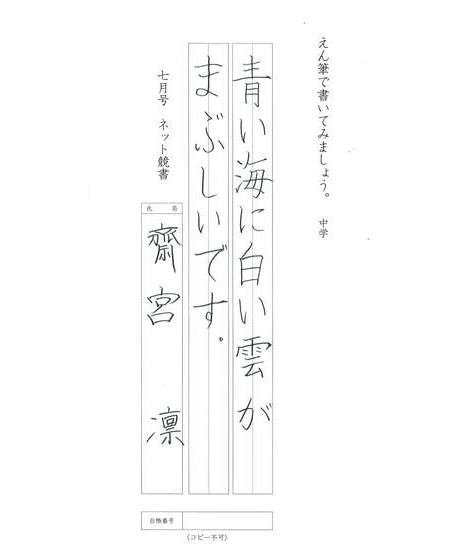 えん筆で書いてみましょう。 中学
青い海に白い雲が
まぶしいです。
七月号 ネット競書
氏 名
齋宮 凛
台帳番号
(コピー不可)